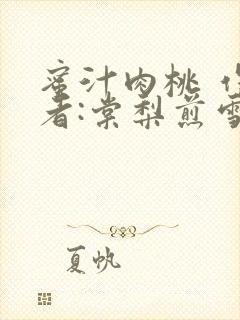 蜜汁肉桃 作
者:棠梨煎雪
夏帆